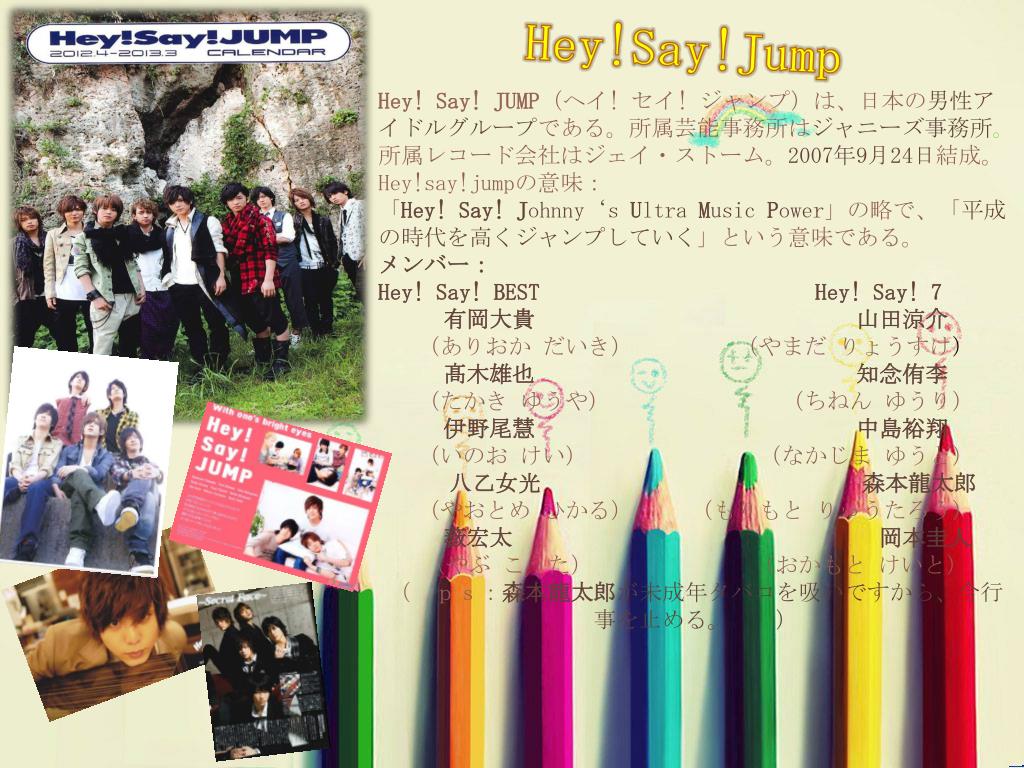 Hey!Say!JUMP
2012.4-2013.3 CALENDAR
Hey!Say!Jump
Hey! Say! JUMP（ヘイ! セイ! ジャンプ）は、日本の男性ア
イドルグループである。所属芸能事務所はジャニーズ事務所。
所属レコード会社はジェイ・ストーム。2007年9月24日結成。
Hey!say!jumpの意味：
「Hey! Say! Johnny‘s Ultra Music Power」の略で、「平成
の時代を高くジャンプしていく」という意味である。
メンバー：
Hey! Say! BEST Hey! Say! 7
有岡大貴 山田涼介
（ありおか だいき） （やまだ りょうすけ）
髙木雄也 知念侑李
（たかき ゆうや） （ちねん ゆうり）
伊野尾慧 中島裕翔
（いのお けい） （なかじま ゆう
八乙女光 森本龍太郎
（やおとめ ひかる） （もりもと りゅうたろう）
薮宏太 岡本圭人
（やぶ こうた） （おかもと けいと）
（ ps：森本龍太郎が未成年タバコを吸いですから、今行
事を止める。 ）
With one's bright eyes
Hey!
Say!
JUMP
~Secret Face~